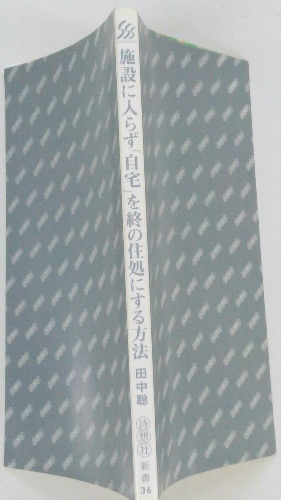 SSS
施設に入らず「自宅」を終の住処にする方法
田中聡
詩想社
新書
36